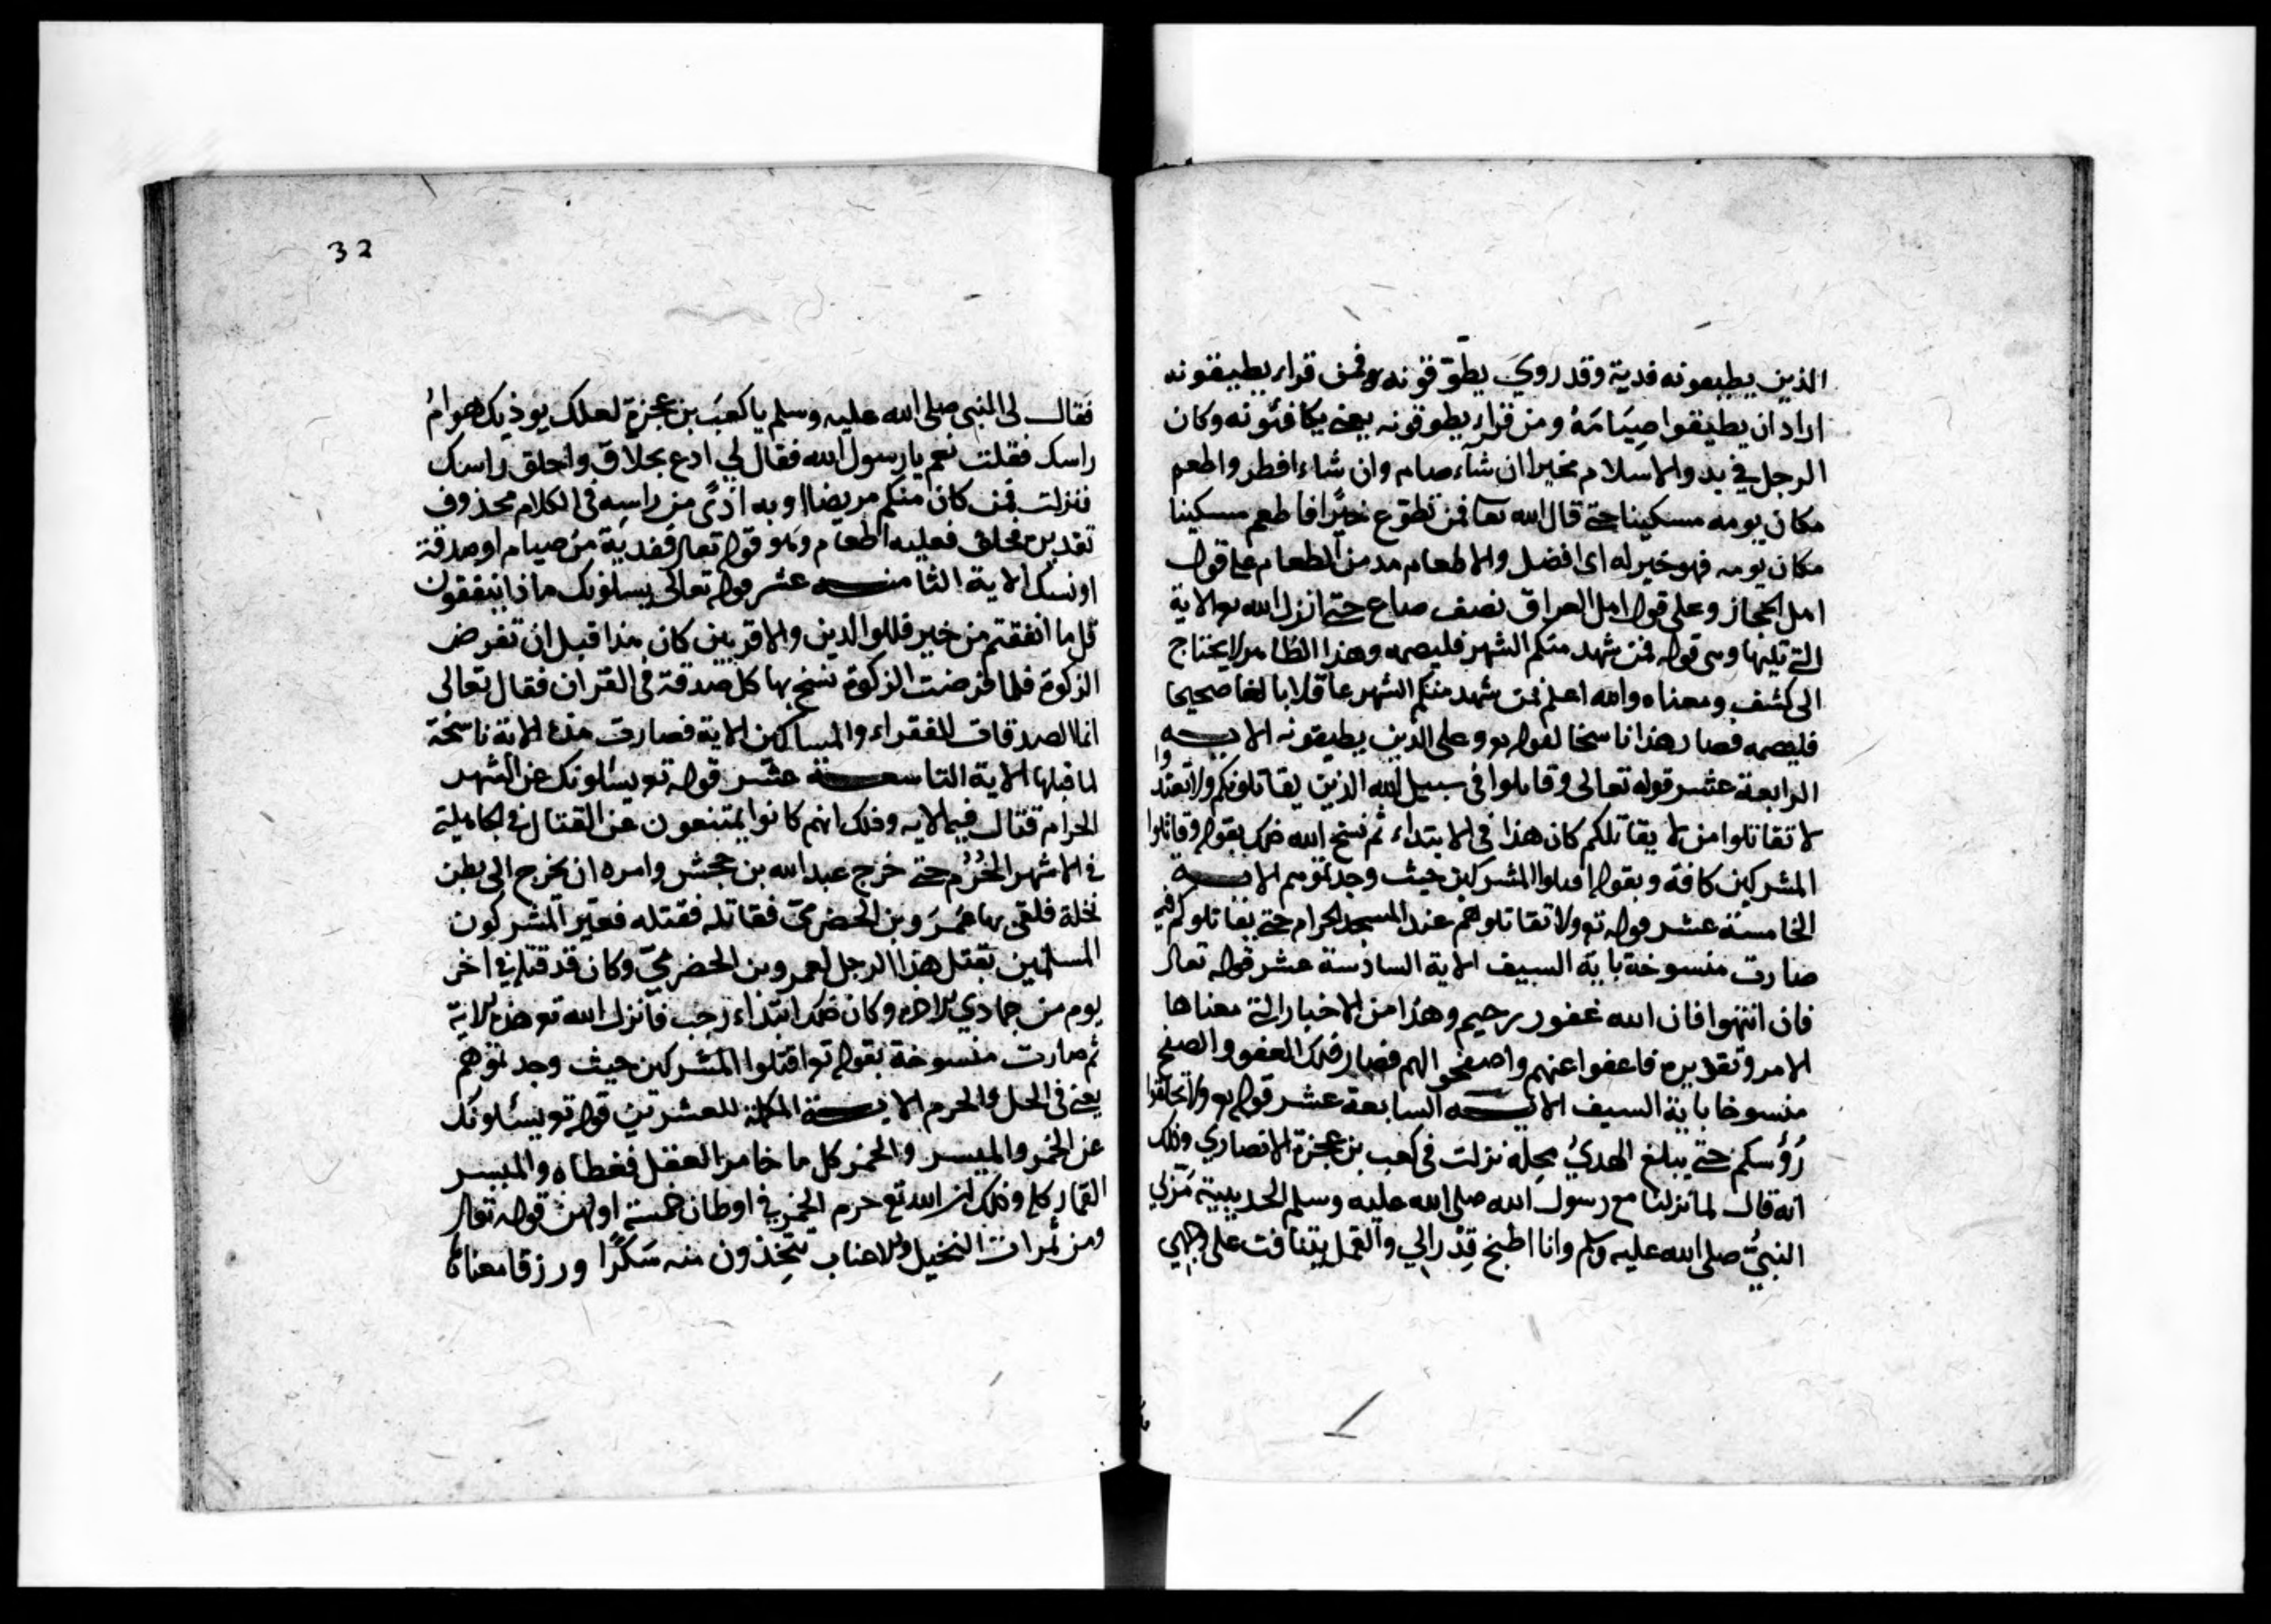 الذين يطيقونه فدية وقد روي يطوّقونه فمن قراء يطيقونه
اراد ان يطيقوا صِيَامَهُ ومن قراء يطوقونه يعني يكافئونه وكان
الرجل في بدو الاسلام مخيرا ان شآء صام وان شاء افطر واطعم
مكان يومه مسكينا حتى قال الله تعا فمن تطوع خيرًا فاطعم مسكينا
مكان يومه فهو خير له اى افضل والاطعام مد من الطعام على قول
اهل الحجاز وعلى قول اهل العراق نصف صاع حتى انزل الله تع الاية
التي تليها وهى قوله فمن شهد منكم الشهر فليصمه وهذا الظاهر لا يحتاج
الى كشف ومعناه والله اعلم فمن شهد منكم الشهر عاقلا بالغا صحيحا
فليصمه فصار هذا ناسخا لقوله تع وعلى الذين يطيقونه الاية
الرابعة عشر قوله تعالى وقاتلوا فى سبيل الله الذين يقاتلونكم ولا تعتدوا
لا تقاتلوا من لا يقاتلكم كان هذا فى الابتداء ثم نسخ الله ذلك بقوله وقاتلوا
المشركين كافة وبقوله اقتلوا المشركين حيث وجدتموهم الاية
الخامسة عشر قوله تع ولا تقاتلوهم عند المسجد الحرام حتى يقاتلوكم فيه
صارت منسوخة باية السيف الاية السادسة عشر قوله تعال
فان انتهوا فان الله غفور رحيم وهذا من الاخبار التي معناها
الامر وتقديره فاعفوا عنهم واصفحوا لهم فصار ذلك العفو والصفح
منسوخا باية السيف الاية السابعة عشر قوله تع ولا تحلقوا
رُؤسكم حتى يبلغ الهديُ محله نزلت فى كعب بن عجزة الانصاري وذلك
انه قال لما نزلنا مع رسول الله صلى الله عليه وسلم الحديبية مرّ بي
النبيُّ صلى الله عليه وسلم وانا اطبخ قِدْرا لي والقمل يتهافت على وجهي
32
فقال لى النبى صلى الله عليه وسلم يا كعبَ بن عجزة لعلك يوذيك هوامُ
راسك فقلت نعم يا رسول الله فقال لي ادع بحلاق واحلق راسك
فنزلت فمن كان منكم مريضا او به اذًى من راسه فى الكلام محذوف
تقديره فحلق فعليه اطعام وهو قوله تعال ففدية من صيام او صدقة
او نسك الاية الثامنة عشر قوله تعالى يسلونك ماذا ينفقون
قل ما انفقتم من خير فللوالدين والاقربين كان هذا قبل ان تفرض
الزكوة فلما فرضت الزكوة نسخ بها كل صدقة فى القران فقال تعالى
انما الصدقات للفقراء والمساكين الاية فصارت هذه الاية ناسخة
لما قبلها الاية التاسعة عشر قوله تع يسئلونك عن الشهر
الحرام قتال فيه الايه وذلك انهم كانوا يمتنعون عن القتال في الجاهلية
في الاشهر الحُرُم حتى خرج عبد الله بن جحش وامره ان يخرج الى بطن
نخلة فلقى بها عَمْرَو بن الحضرمىّ فقاتله فقتله فعيّر المشركون
المسلمين بقتل هذا الرجل لعمرو بن الحضرميّ وكان قد قتله في اخر
يوم من جمادي الاخره وكان ذلك ابتداء رجب فانزل الله تع هذه الاية
ثم صارت منسوخة بقوله تع اقتلوا المشركين حيث وجدتموهم
يعنى فى الحل والحرم الاية المكملة للعشرين قوله تع يسئلونك
عن الخمر والميسر والخمر كل ما خامر العقل فغطاه والميسر
القمار كله وذلك ان الله تع حرم الخمر في اوطان خمسة اولهن قوله تعال
ومن ثمرات النخيل والاعناب تتخِذون منه سَكَرًا ورزقا معناه